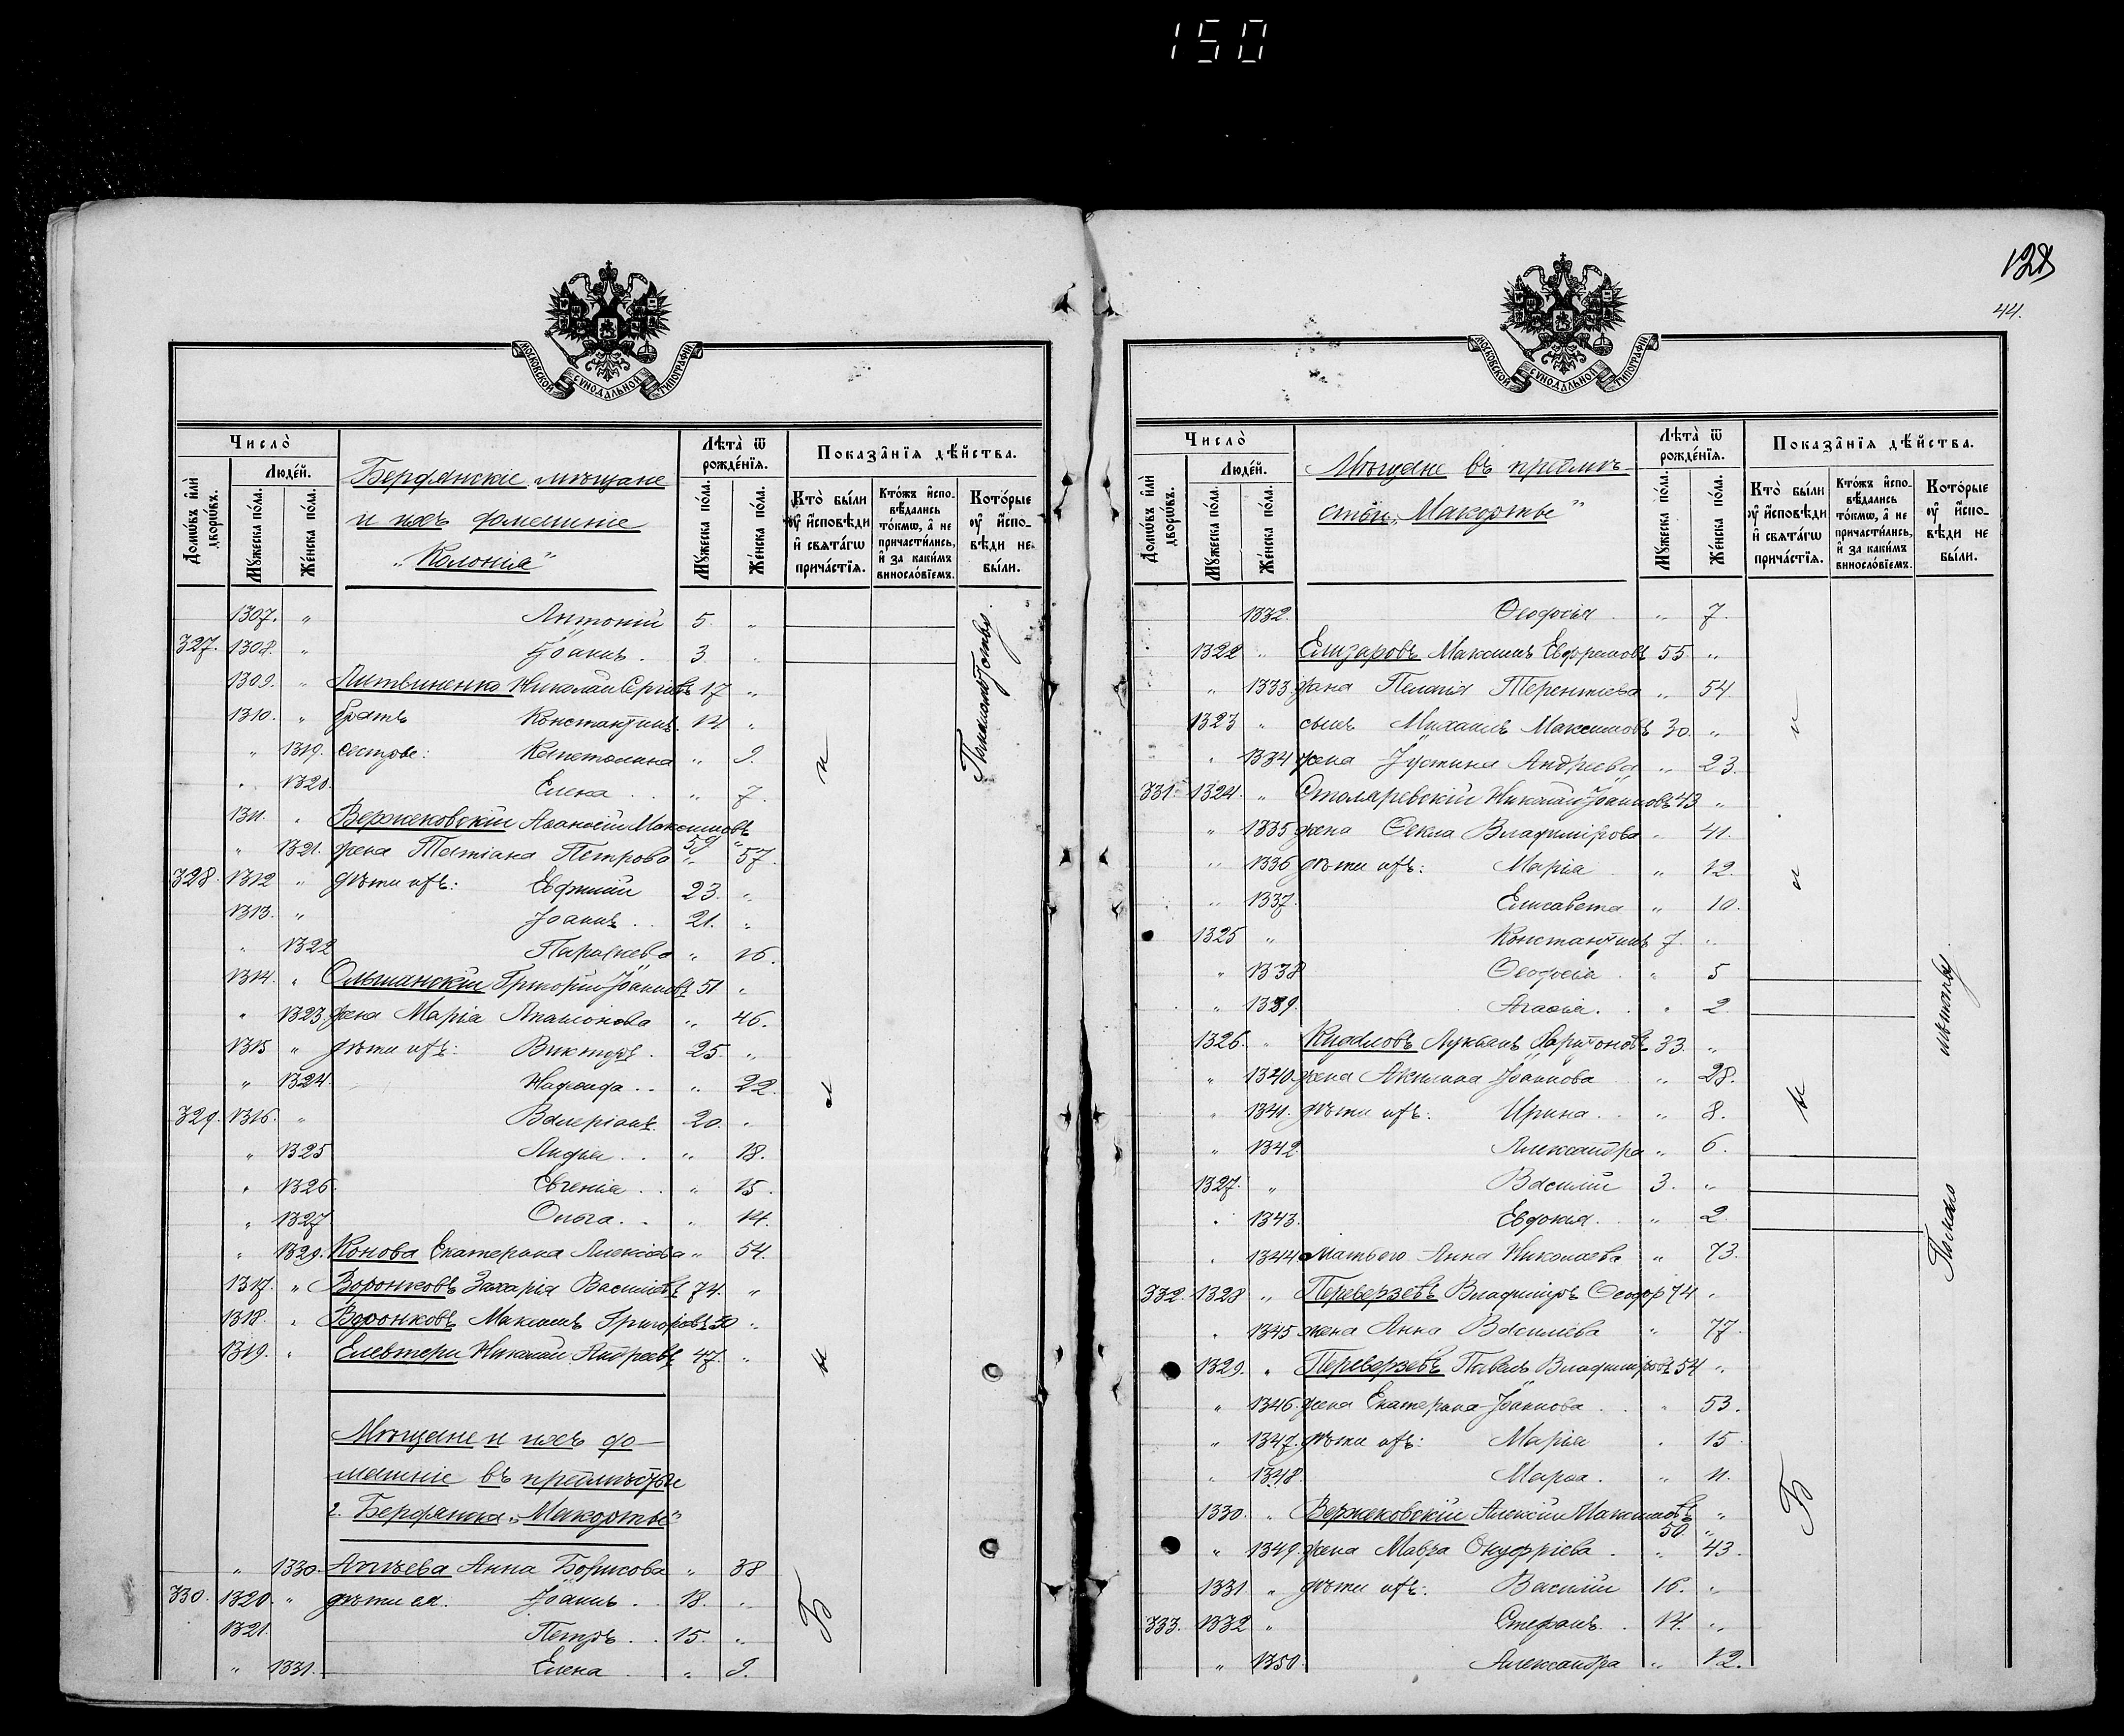 150
МОСКОВСКОЙ СѴНОДАЛЬНОЙ ТИПОГРАФІИ
Число̀
Люде́й.
Домѡ́въ и҆лѝ дворѡ́въ.
Мꙋ́жеска по́ла.
Же́нска по́ла.
Бердянскіе мѣщане
и ихъ домашніе
„Колонія“
Лѣта̀ ѿ рожде́нїя.
Мꙋ́жеска по́ла.
Же́нска по́ла.
Показа̑нїя дѣ́йства.
Кто̀ бы́ли ᲂу҆ и҆сповѣди и҆ свята́гѡ прича́стїя.
Кто́жъ и҆сповѣдались то́кмѡ, а҆ не причасти́лись, и҆ за каки́мъ винослόвїемъ.
Кото́рые ᲂу҆ и҆споˊвѣди не бы́ли.
1307. „ Антоній 5. „
327. 1308. „ Іоаннъ. 3 „
1309. „ Литвиненко Николай Сергіевъ 17 „
1310. „ братъ Константинъ. 14 „
„ 1319. сестры: Капетолина „ 9.
„ 1320. Елена . . „ 7.
1311. „ Вержековскій Аѳанасій Максимовъ 59 „
„ 1321. жена Татіана Петрова „ 57.
328. 1312 „ дѣти ихъ: Евфимій 23. „
1313. „ Іоаннъ . . 21. „
„ 1322 Параскева „ 16.
1314. „ Ольшанскій Григорій Іоанновъ 51 „
„ 1323 жена Марія „ 46.
1315 „ дѣти ихъ: Викторъ . 25. „
„ 1324. . . „ 22.
329. 1316. „ Валеріанъ. 20. „
„ 1325 Лидія . . „ 18.
„ 1326. Евгенія . . „ 15.
„ 1327 Ольга. . „ 14.
„ 1329. Конова Екатерина Алексіева „ 54.
1317. „ Воронковъ Захарія Василіевъ 74. „
1318. „ Воронковъ Максимъ Григоріевъ 50 „
1319. „ Елевтери Николай Андреевъ 47. „
Мѣщане и ихъ до-
машніе въ предмѣстьи
г. Бердянска „Макорты“
„ 1330. Анна Борисова „ 38
330. 1320. „ дѣти ея. Іоаннъ . 18. „
1321. Петръ . . 15. „
„ 1331. Елена . „ 9.
128
44.
МОСКОВСКОЙ СѴНОДАЛЬНОЙ ТИПОГРАФІИ
Число̀
Люде́й.
Домѡ́въ и҆лѝ дворѡ́въ.
Мꙋ́жеска по́ла.
Же́нска по́ла.
Мѣщане въ предмѣ-
стьи „Макорты“
Лѣта̀ ѿ рожде́нїя.
Мꙋ́жеска по́ла.
Же́нска по́ла.
Показа̑нїя дѣ́йства.
Кто̀ бы́ли ᲂу҆ и҆сповѣди и҆ свята́гѡ прича́стїя.
Кто́жъ и҆сповѣдались то́кмѡ, а҆ не причасти́лись, и҆ за каки́мъ винослόвїемъ.
Кото́рые ᲂу҆ и҆споˊвѣди не бы́ли.
1332. Ѳеодосія . „ 7.
1322 „ Елизаровъ Максимъ Евфремовъ 55. „
„ 1333. жена Пелагія Терентіева „ 54
1323 „ сынъ Михаилъ Максимовъ 30. „
„ 1334 жена Іустина Андреева „ 23.
331. 1324. „ Столяревскій Николай Іоанновъ 43 „
„ 1335 жена Ѳекла Владимірова „ 41.
„ 1336 дѣти ихъ: Марія „ 12.
„ 1337. Елисавета „ 10.
1325 „ Константинъ 7. „
„ 1338 Ѳеодосія . „ 5
„ 1339. Агаѳія . . „ 2
1326. „ Лукіанъ Харитоновъ 33. „
„ 1340. жена Акилина Іоаннова „ 28.
„ 1341. дѣти ихъ: Ирина . . „ 8.
„ 1342 Александра „ 6.
1327. „ Василій 3. „
„ 1343. Евдокія . „ 2
„ 1344 мать его Анна Николаева „ 73.
332. 1328 „ Переверзевъ Владиміръ Ѳеодор 74 „
„ 1345 жена Анна Василіева „ 77.
1329. „ Переверзевъ Павелъ Владиміровъ 54 „
„ 1346. жена Екатерина Іоаннова . „ 53.
„ 1347. дѣти ихъ: Марія „ 15
„ 1348. Марѳа . „ 11.
1330. „ Вержековскій Алексій Максимовъ 50. „
„ 1349. жена Мавра Онуфріева . „ 43.
1331 „ дѣти ихъ: Василій 16. „
333. 1332 „ Стефанъ. . 14. „
„ 1350. Александра „ 12.
Б
ы
л
и
По малолѣтству
Б
ы
л
и
По мало лѣтству